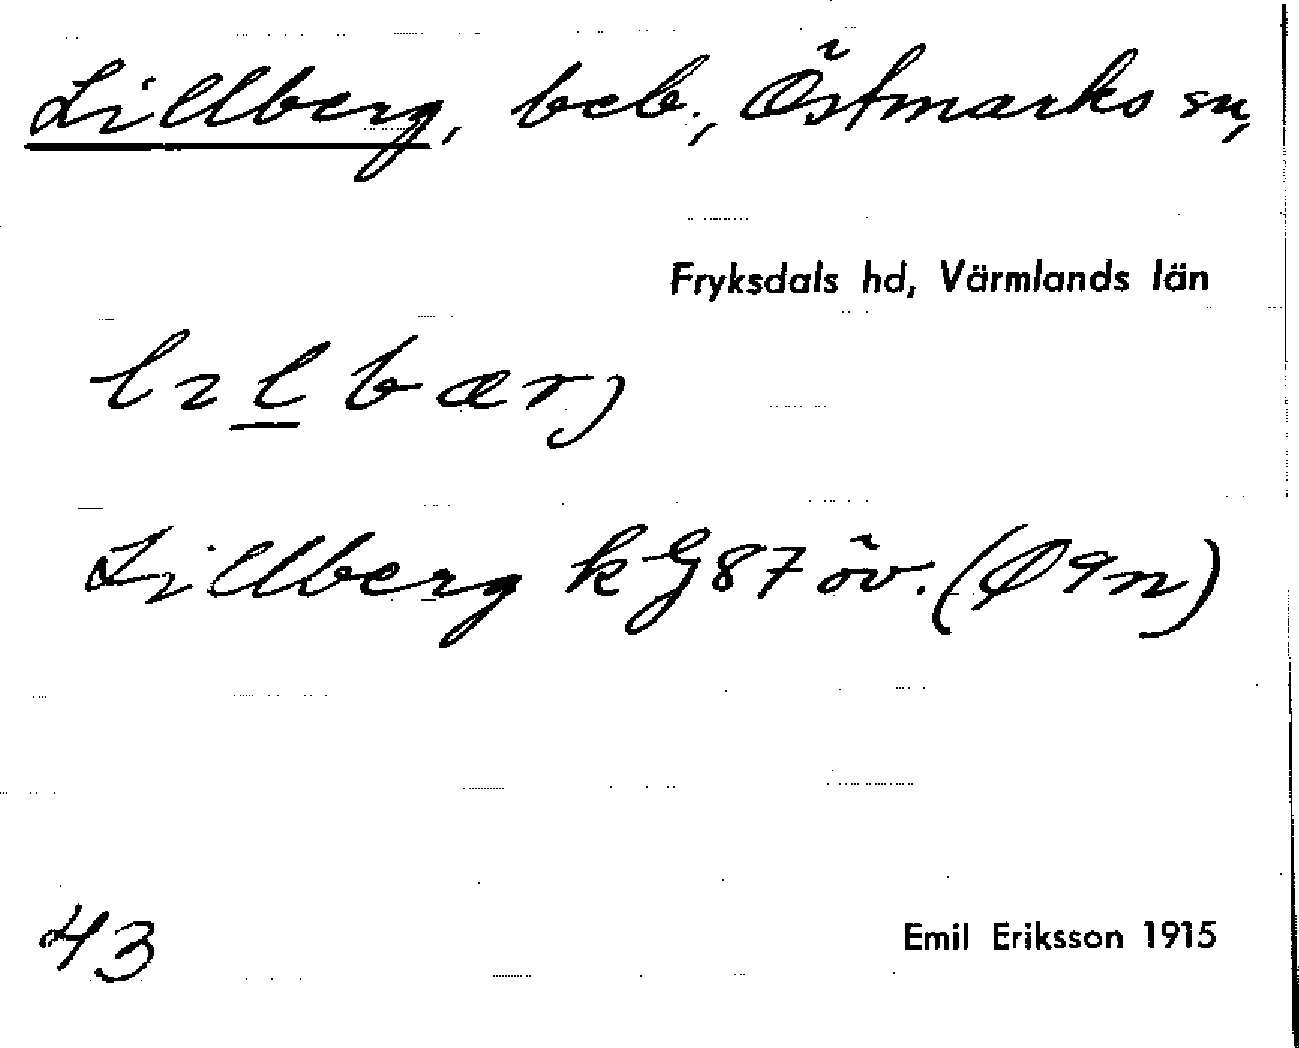 Lillberg, beb., Östmarks sn,
Fryksdals hd, Värmlands län
Lillberg k G 87 öv. (Ø 9n)
43
Emil Eriksson 1915